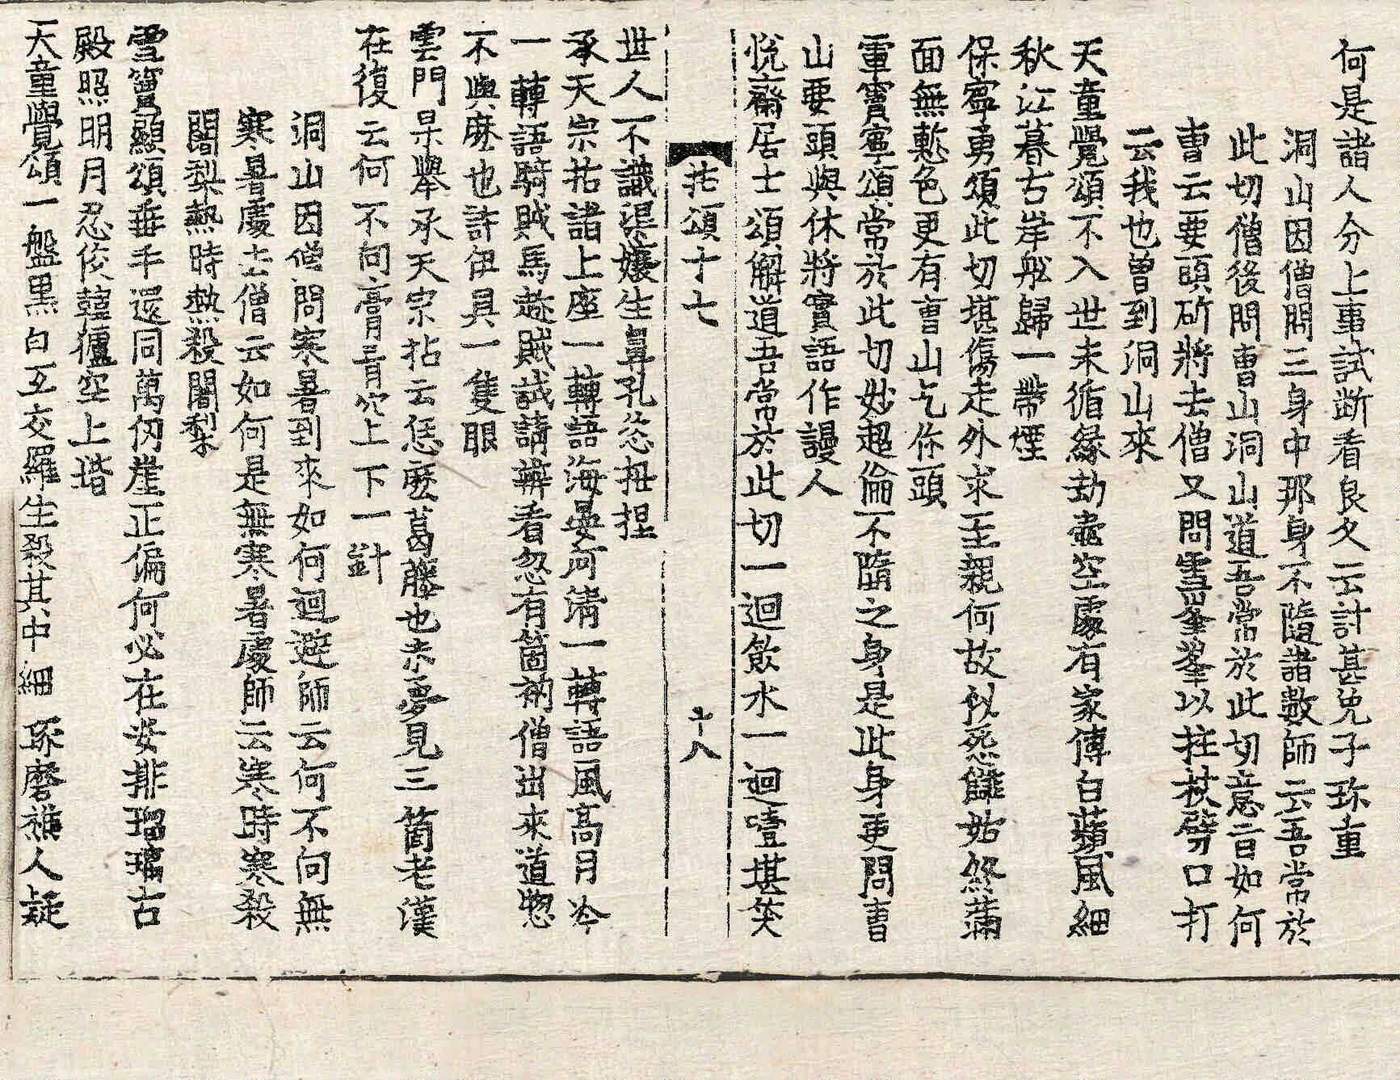 何是諸人分上事試断看良久云討甚兔子珎重
洞山因僧問三身中那身不隨諸數師云吾常於
此切僧後問曹山洞山道吾常於此切意旨如何
曹云要頭斫將去僧又問雪峯峯以拄杖劈口打
云我也曾到洞山來
天童覺頌不入世未循緣劫壷空處有家傳白蘋風細
秋江暮古岸舡歸一帶煙
保寧勇頌此切堪傷走外求至親何故似㤙讎姑終蒲
面無慙色更有曹山乞你頭
重寶寧頌常於此切妙超倫不隨之身是此身更問曹
山要頭與休將實語作謾人
悅齋居士頌解道吾常於此切一迴飲水一迴噎堪笑
拈頌十七 十八
世人不識渠孃生鼻孔忩扭捏
承天宗拈諸上座一轉語海晏河清一轉語風高月冷
一轉語騎賊馬趂賊試請辨看忽有箇衲僧出來道惣
不與麽也許伊具一隻眼
雲門杲舉承天宗拈云恁麽葛藤也未夢見三箇老漢
在復云何不向膏肓穴上下一針
洞山因僧問寒暑到來如何迴避師云何不向無
寒暑處去僧云如何是無寒暑處師云寒時寒殺
闍梨熱時熱殺闍梨
雪竇顯頌垂手還同萬仞崖正偏何必在安排瑠璃古
殿照明月忍俊韓獹空上堦
天童覺頌一盤黒白互交羅生殺其中細琢磨補人疑